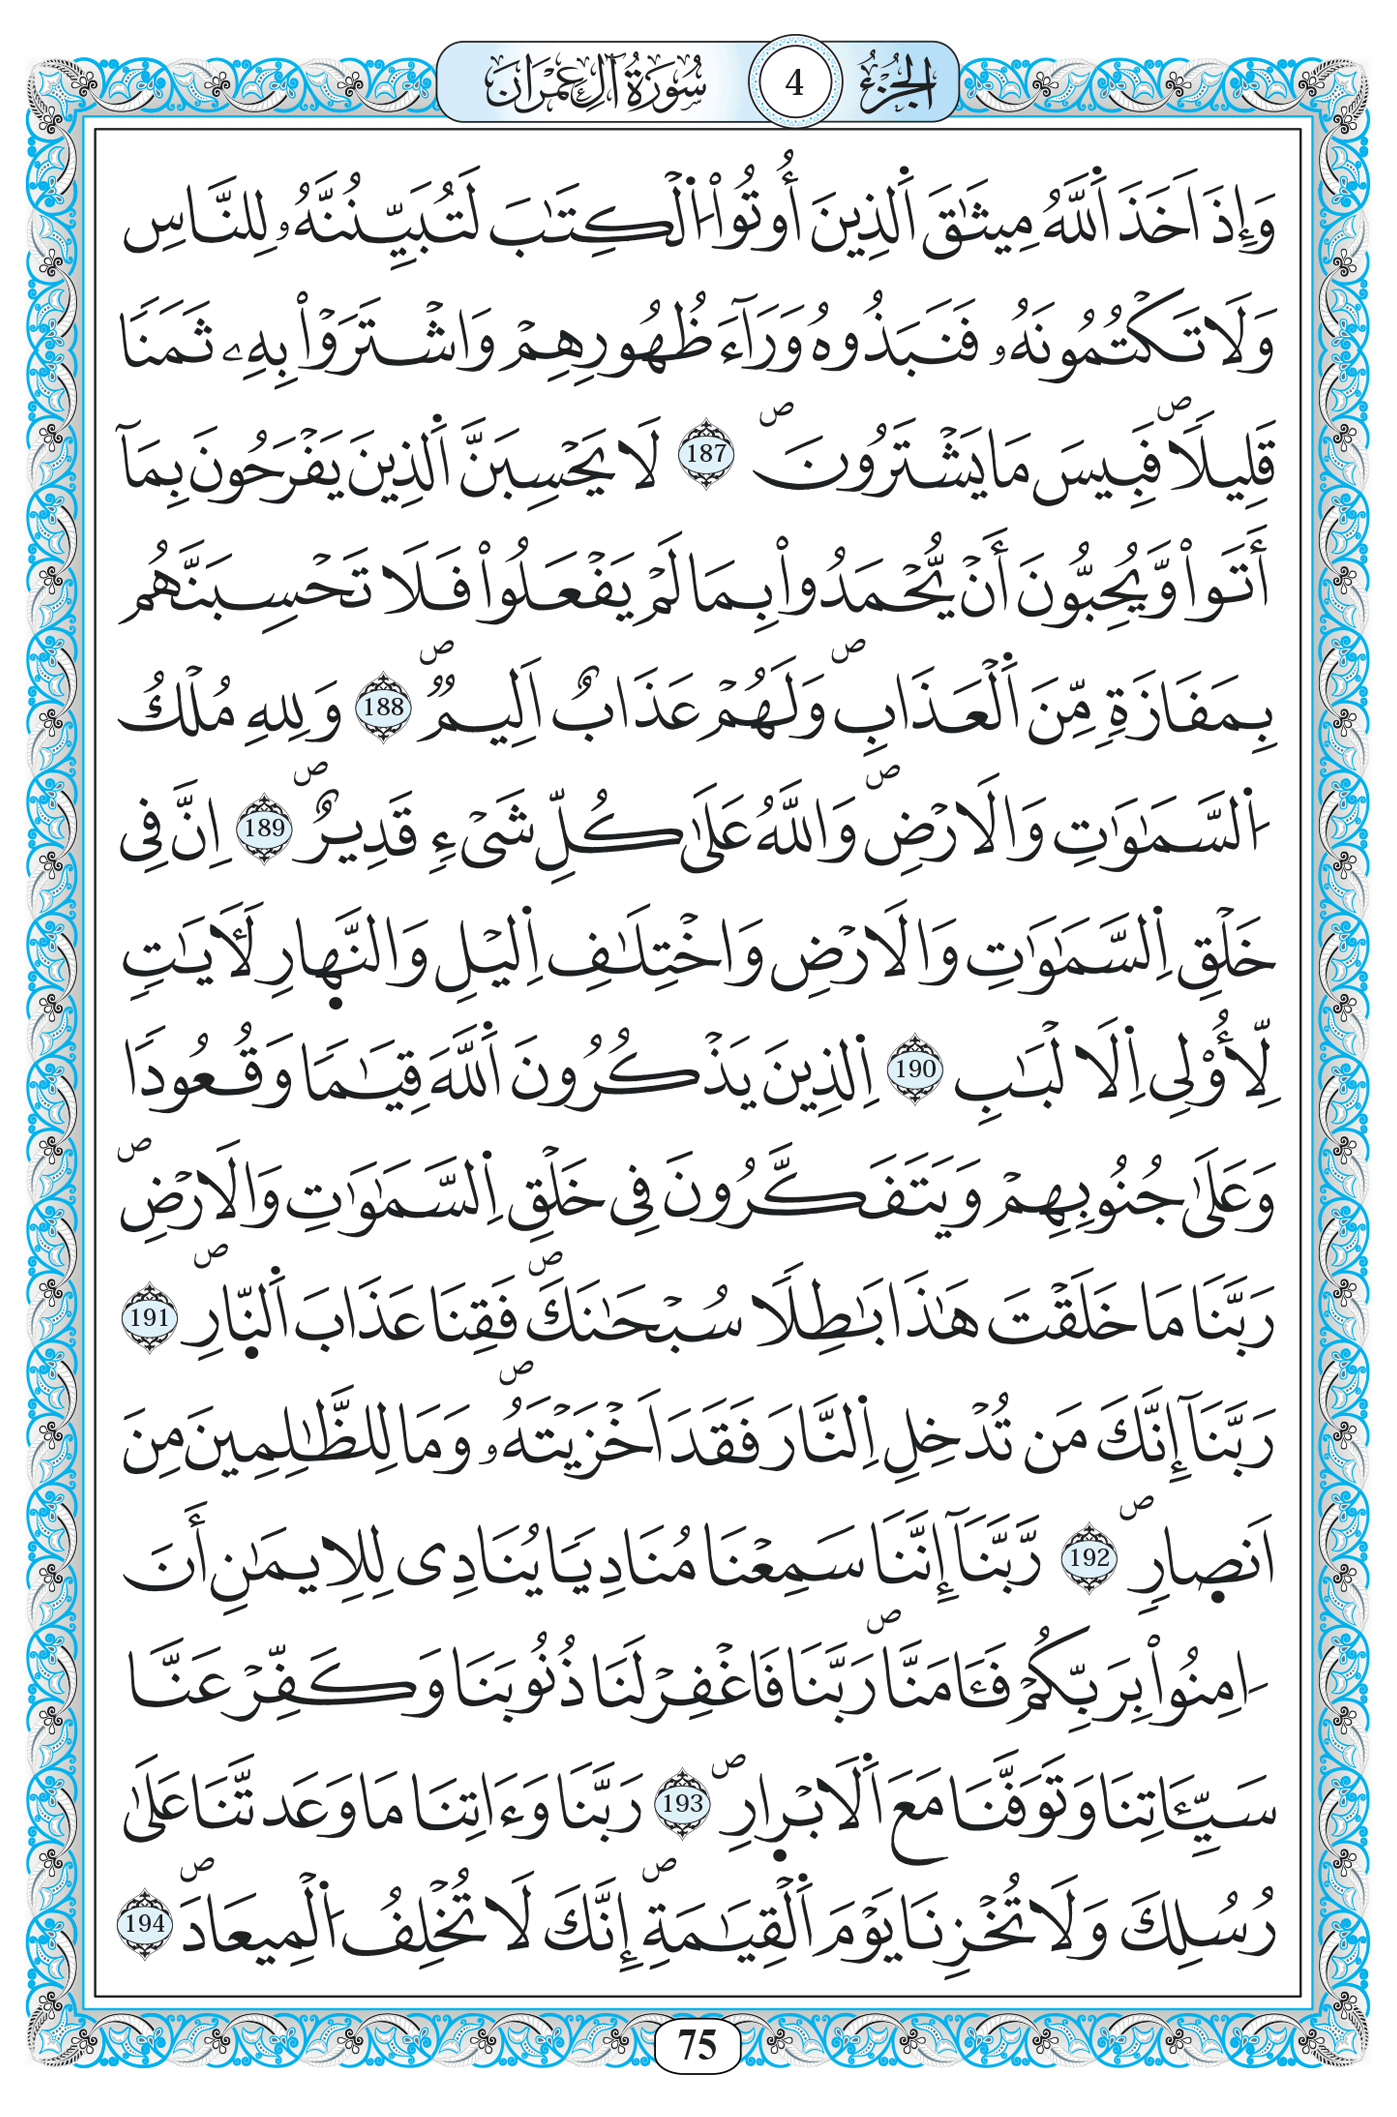 الجُزْءُ 4 سُورَةُ آلِ عِمْرَانَ
وَإِذَ اَخَذَ اَ۬للَّهُ مِيثَٰقَ اَ۬لذِينَ أُوتُواْ اُ۬لْكِتَٰبَ لَتُبَيِّنُنَّهُۥ لِلنَّاسِ
وَلَا تَكْتُمُونَهُۥ فَنَبَذُوهُ وَرَآءَ ظُهُورِهِمْ وَاشْتَرَوْاْ بِهِۦ ثَمَناٗ
قَلِيلاٗۖ فَبِيسَ مَا يَشْتَرُونَۖ 187 لَا يَحْسِبَنَّ اَ۬لذِينَ يَفْرَحُونَ بِمَآ
أَتَواْ وَّيُحِبُّونَ أَنْ يُّحْمَدُواْ بِمَا لَمْ يَفْعَلُواْ فَلَا تَحْسِبَنَّهُم
بِمَفَازَةٖ مِّنَ اَ۬لْعَذَابِۖ وَلَهُمْ عَذَابٌ اَلِيمٞۖ 188 وَلِلهِ مُلْكُ
اُ۬لسَّمَٰوَٰتِ وَالَارْضِۖ وَاللَّهُ عَلَىٰ كُلِّ شَےْءٖ قَدِيرٌۖ 189 اِنَّ فِے
خَلْقِ اِ۬لسَّمَٰوَٰتِ وَالَارْضِ وَاخْتِلَٰفِ اِ۬ليْلِ وَالنَّه۪ارِ لَأٓيَٰتٖ
لِّأُوْلِے اِ۬لَالْبَٰبِ 190 اِ۬لذِينَ يَذْكُرُونَ اَ۬للَّهَ قِيَٰماٗ وَقُعُوداٗ
وَعَلَىٰ جُنُوبِهِمْ وَيَتَفَكَّرُونَ فِے خَلْقِ اِ۬لسَّمَٰوَٰتِ وَالَارْضِۖ
رَبَّنَا مَا خَلَقْتَ هَٰذَا بَٰطِلاٗ سُبْحَٰنَكَۖ فَقِنَا عَذَابَ اَ۬لنّ۪ارِۖ 191
رَبَّنَآ إِنَّكَ مَن تُدْخِلِ اِ۬لنَّارَ فَقَدَ اَخْزَيْتَهُۥۖ وَمَا لِلظَّٰلِمِينَ مِنَ
اَنص۪ارٖۖ 192 رَّبَّنَآ إِنَّنَا سَمِعْنَا مُنَادِياٗ يُنَادِے لِلِايمَٰنِ أَنَ
اٰمِنُواْ بِرَبِّكُمْ فَـَٔامَنَّاۖ رَبَّنَا فَاغْفِرْ لَنَا ذُنُوبَنَا وَكَفِّرْ عَنَّا
سَيِّـَٔاتِنَا وَتَوَفَّنَا مَعَ اَ۬لَابْر۪ارِۖ 193 رَبَّنَا وَءَاتِنَا مَا وَعَدتَّنَا عَلَىٰ
رُسُلِكَ وَلَا تُخْزِنَا يَوْمَ اَ۬لْقِيَٰمَةِۖ إِنَّكَ لَا تُخْلِفُ اُ۬لْمِيعَادَۖ 194
75